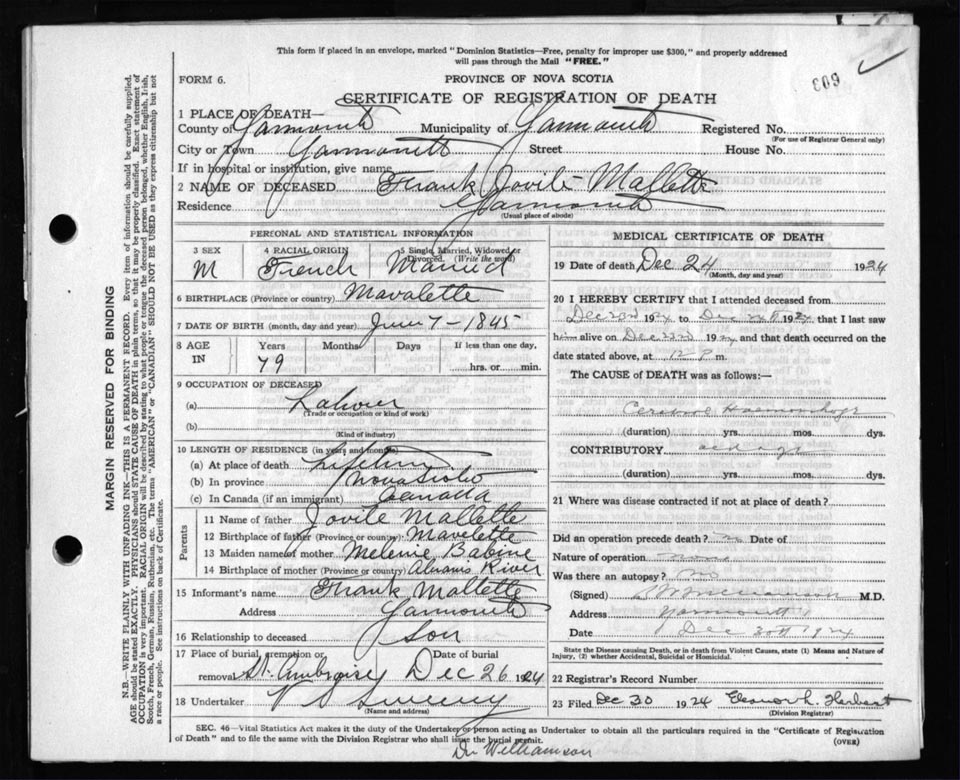 This form if placed in an envelope, marked "Dominion Statistics—Free, penalty for improper use $300," and properly addressed
will pass through the Mail "FREE."
FORM 6.
PROVINCE OF NOVA SCOTIA
609
CERTIFICATE OF REGISTRATION OF DEATH
1 PLACE OF DEATH—
County of Yarmouth Municipality of Yarmouth Registered No.
(For use of Registrar General only)
City or Town Yarmouth Street House No.
If in hospital or institution, give name
2 NAME OF DECEASED Frank Jovite Mallette
Residence Yarmouth
(Usual place of abode)
PERSONAL AND STATISTICAL INFORMATION
3 SEX 4 RACIAL ORIGIN 5 Single, Married, Widowed or Divorced. (Write the word)
M French Married
6 BIRTHPLACE (Province or country) Mavalette
7 DATE OF BIRTH (month, day and year) June 7 – 1845
8 AGE IN Years Months Days If less than one day,
79 hrs. or min.
9 OCCUPATION OF DECEASED
(a) Labourer
(Trade or occupation or kind of work)
(b)
(Kind of industry)
10 LENGTH OF RESIDENCE (in years and months)
(a) At place of death Lifetime
(b) In province Nova Scotia
(c) In Canada (if an immigrant) Canada
Parents
11 Name of father Jovite Mallette
12 Birthplace of father (Province or country) Mavelette
13 Maiden name of mother Melenie Babine
14 Birthplace of mother (Province or country) River
15 Informant's name Frank Mallette
Address Yarmouth
16 Relationship to deceased Son
17 Place of burial, cremation or removal Date of burial
St. Ambroise Dec 26 1924
18 Undertaker V S Sweeny
(Name and address)
MEDICAL CERTIFICATE OF DEATH
19 Date of death Dec 24 1924
(Month, day and year)
20 I HEREBY CERTIFY that I attended deceased from
1924 to Dec 24 1924 that I last saw
him alive on Dec 1924 and that death occurred on the
date stated above, at 12 P m.
The CAUSE of DEATH was as follows:—
Cerebral Haemorrhage
(duration) yrs. mos. dys.
CONTRIBUTORY old age
(duration) yrs. mos. dys.
21 Where was disease contracted if not at place of death?
Did an operation precede death? no Date of
Nature of operation none
Was there an autopsy? no
(Signed) Williamson M.D.
Address Yarmouth
Date Dec 30th 1924
State the Disease causing Death, or in death from Violent Causes, state (1) Means and Nature of
Injury, (2) whether Accidental, Suicidal or Homicidal.
22 Registrar's Record Number
23 Filed Dec 30 1924 Eleanor L. Herbert
(Division Registrar)
SEC. 46—Vital Statistics Act makes it the duty of the Undertaker or person acting as Undertaker to obtain all the particulars required in the "Certificate of Registration
of Death" and to file the same with the Division Registrar who shall issue the burial permit.
(OVER)
Dr Williamson
MARGIN RESERVED FOR BINDING
N.B.—WRITE PLAINLY WITH UNFADING INK—THIS IS A PERMANENT RECORD. Every item of information should be carefully supplied.
AGE should be stated EXACTLY. PHYSICIANS should STATE CAUSE OF DEATH in plain terms, so that it may be properly classified. Exact statement of
OCCUPATION is very important. RACIAL ORIGIN will be described by stating to what people or tongue the deceased person belonged, whether English, Irish,
Scotch, French, German, Russian, Ruthenian, etc. The terms "AMERICAN" or "CANADIAN" SHOULD NOT BE USED as they express citizenship but not
a race or people. See instructions on back of Certificate.